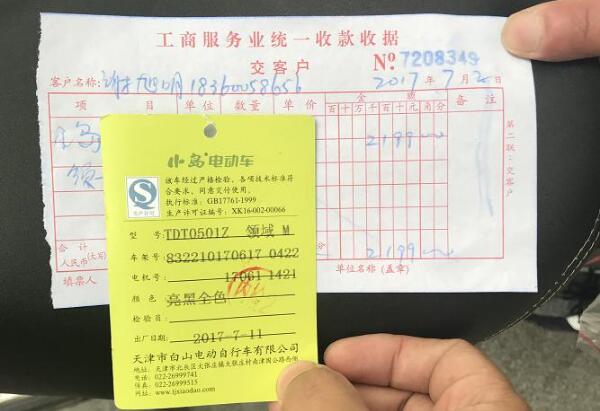 工商服务业统一收款收据
交客户
No 7208349
客户名称: 谢旭明 18360058656
2017 年 7 月
项 目 单位 数量 单价 金 额 备注
百 十 万 千 百 十 元 角 分
小鸟
2199
第二联:交客户
合计
人民币(大写)
2199
填票人
单位名称(盖章)
小鸟电动车
该车经过严格检验,各项技术标准符
合要求,同意交付使用。
执行标准:GB17761-1999
生产许可证编号:XK16-002-00066
型 号:TDT0501Z 领域 M
车架号:832210170617 0422
电机号:17061 1421
颜 色:亮黑全色
检验员:
出厂日期:2017-7-11
天津市白山电动自行车有限公司
地址:天津市北辰区大张庄镇大张庄村南津围公路西侧
电话:022-26999741
传真:022-26999515
网址:www.tjxiaodao.com